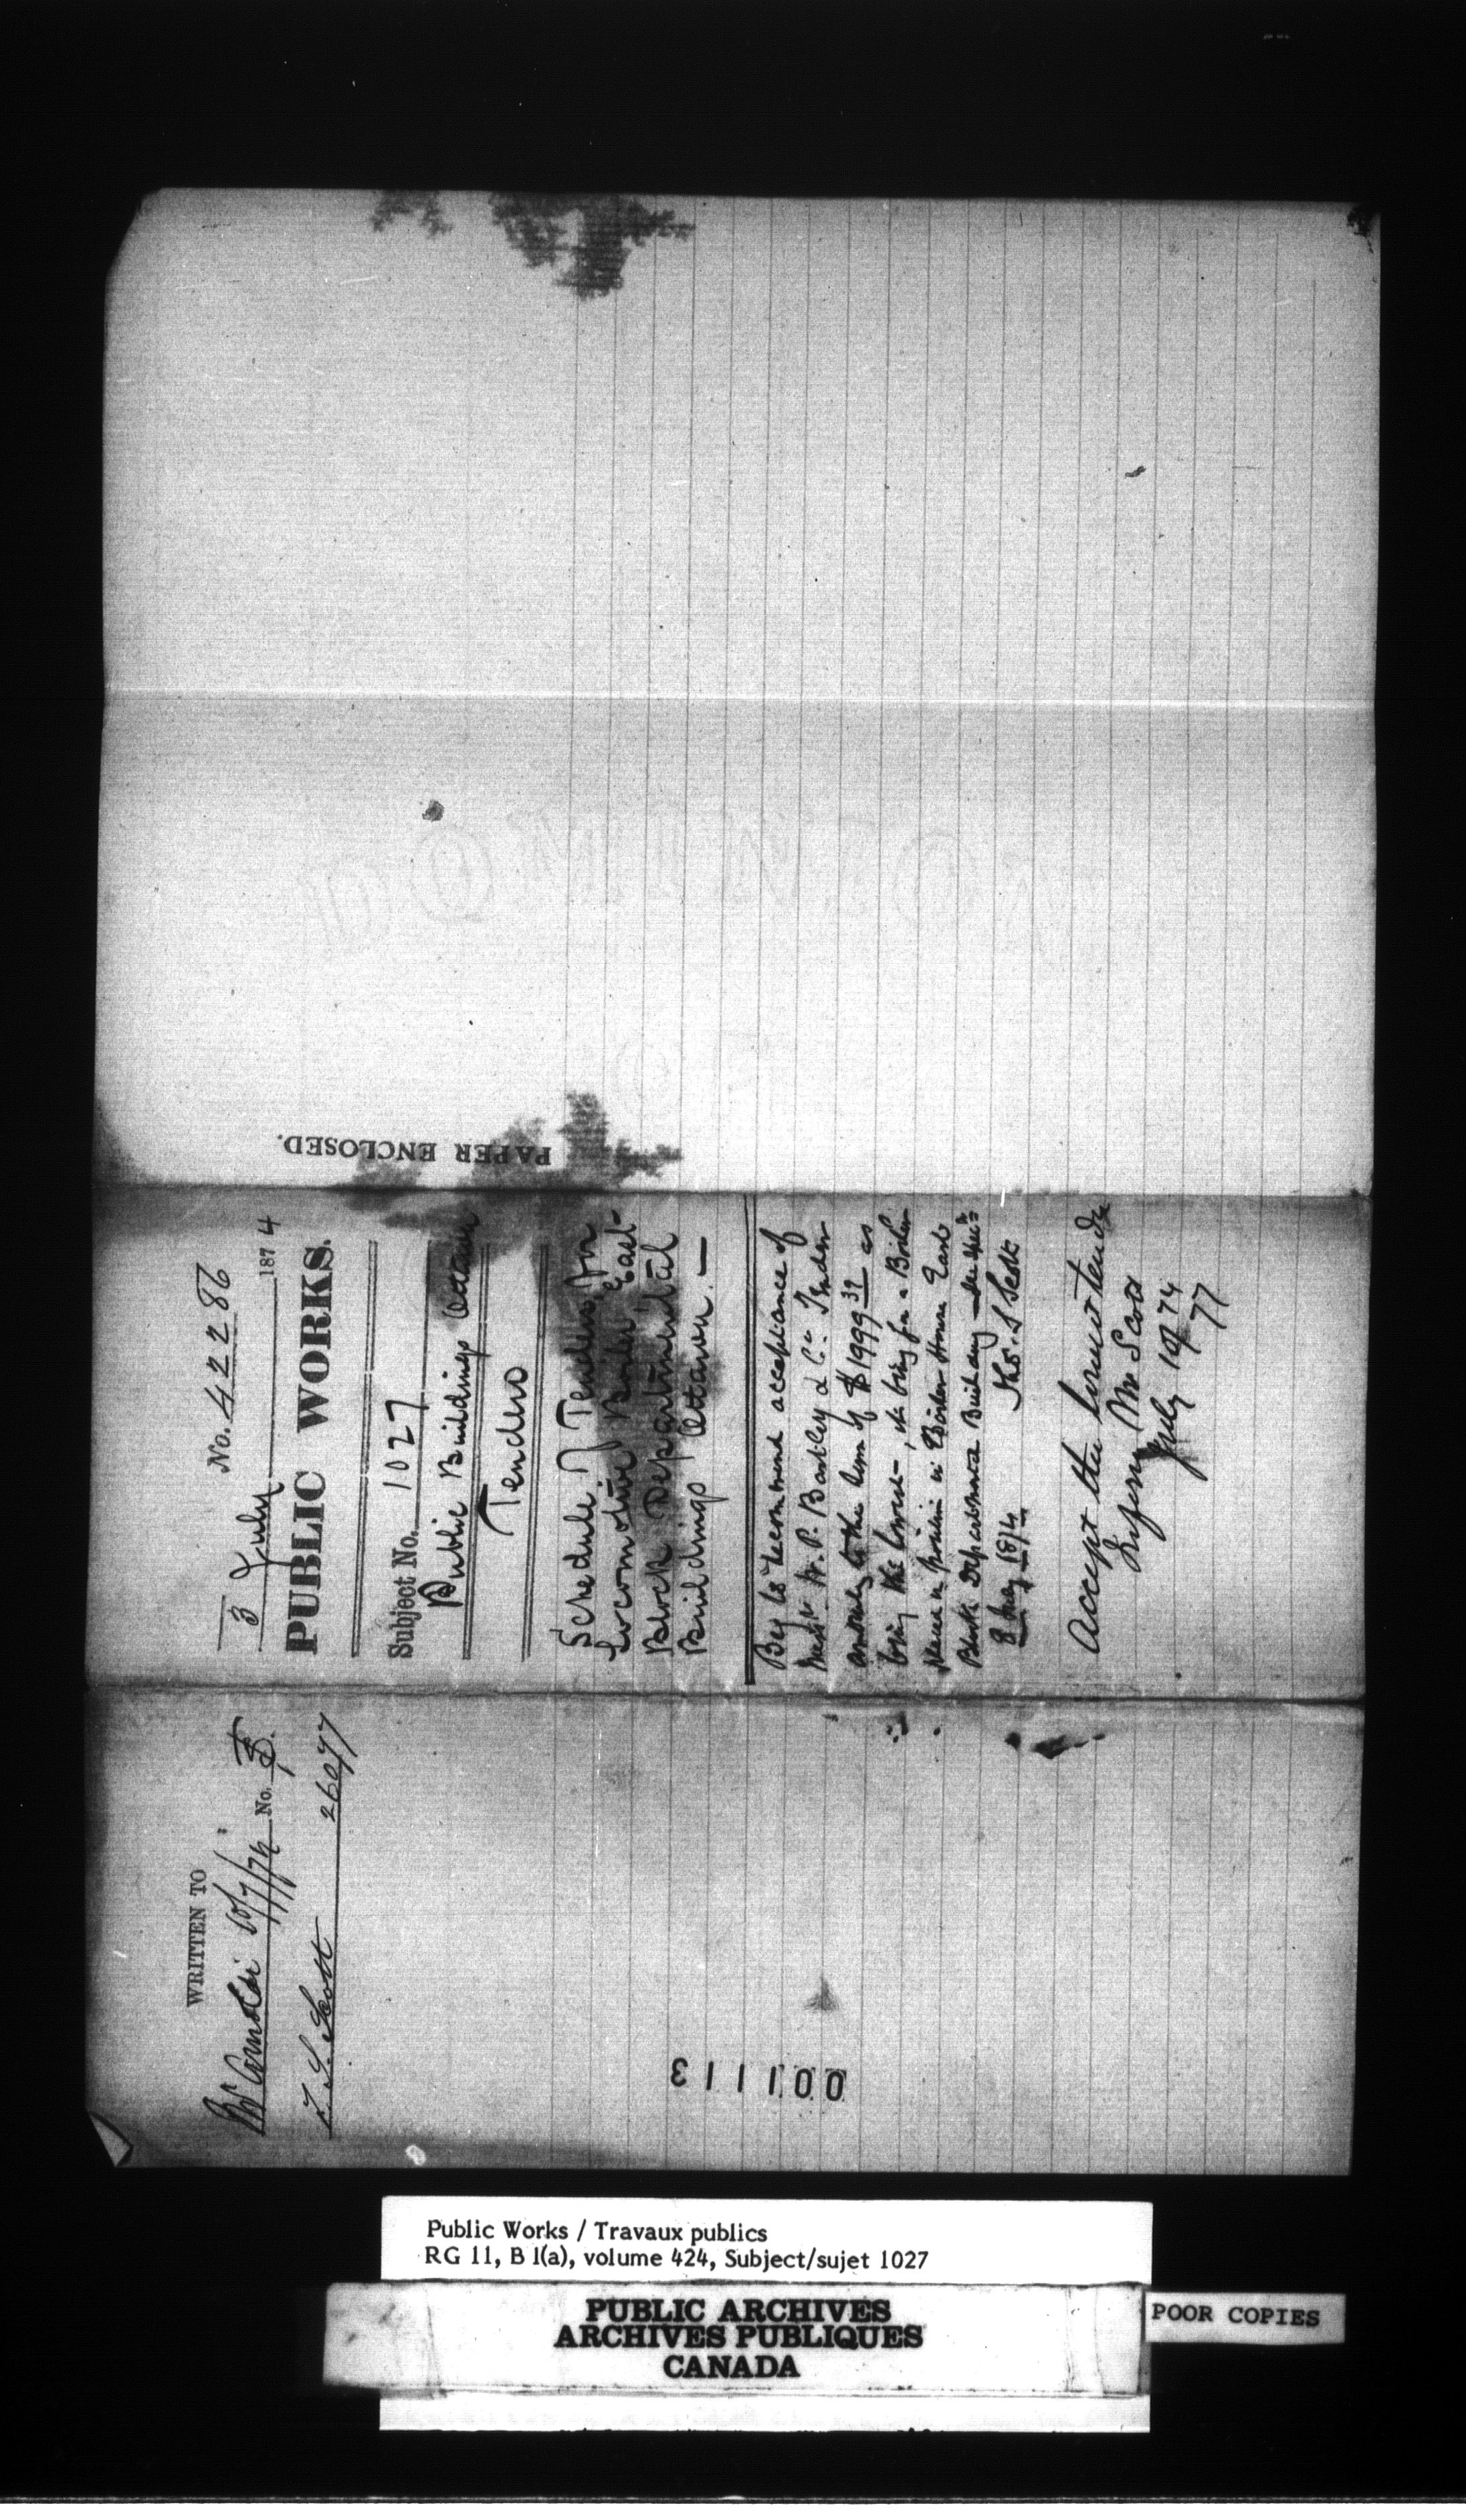 No. 42286
3 July 1874
PUBLIC WORKS.
Subject No. 1027
Public Buildings Ottawa
Tenders
Schedule of Tenders for
Locomotive Boiler East-
Block Departmental
Buildings Ottawa. —
Beg to recommend acceptance of
Messrs W. P. Bartley & Co. Tender
amounting to the sum of $1999 as
being the lowest - being for a Boiler
placed in position in Boiler House East
Block Departmental Buildings
Thos. S Scott
8 July 1874
Accept the lowest tender
Inform Mr Scott
July 10/74
77
PAPER ENCLOSED.
WRITTEN TO
Mr Arnoldi 10/7/74 No.
T. S. Scott 26077
001113
Public Works / Travaux publics
RG 11, B 1(a), volume 424, Subject/sujet 1027
PUBLIC ARCHIVES
ARCHIVES PUBLIQUES
CANADA
POOR COPIES